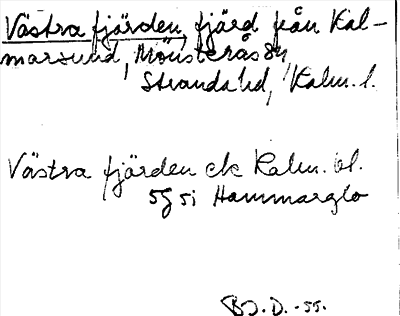 Västra fjärden, fjärd från Kal-
marsund, Mönsterås sn,
Stranda hd, Kalm. l.
Västra fjärden ek Kalm. bl.
5g 5i Hammarglo
B.J.D. -55.